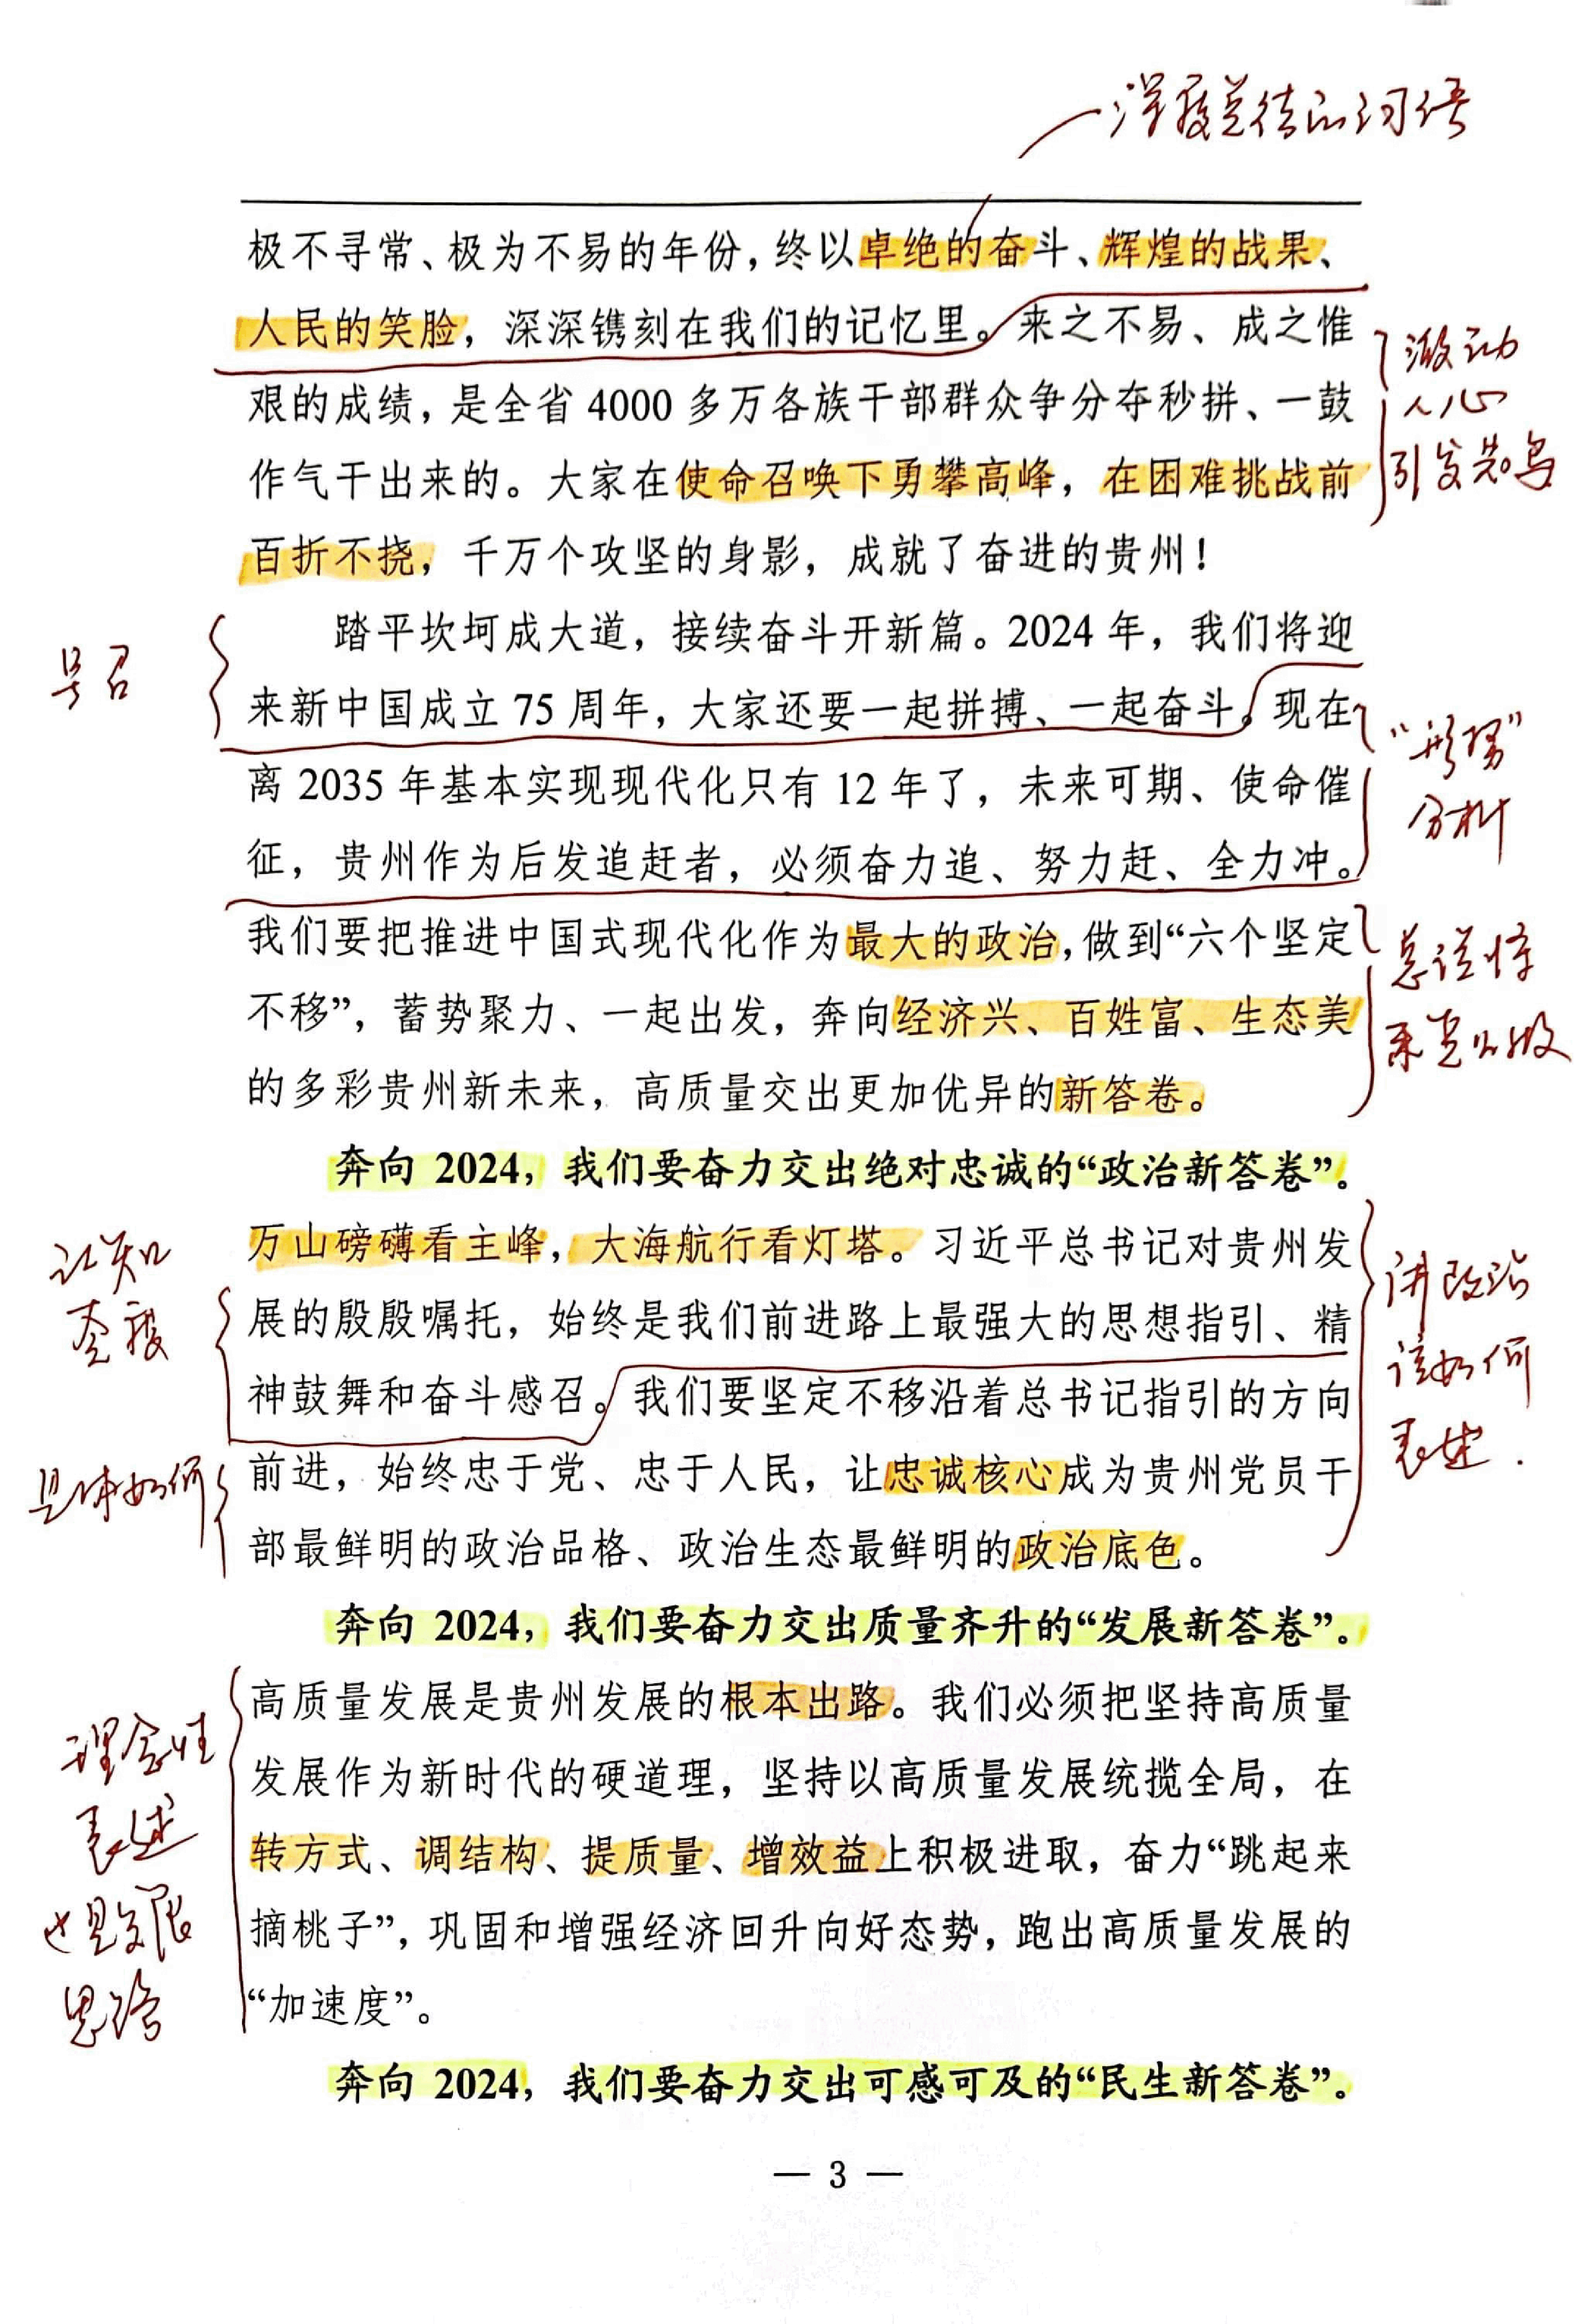 深度总结的词语
极不寻常、极为不易的年份，终以卓绝的奋斗、辉煌的战果、
人民的笑脸，深深镌刻在我们的记忆里。来之不易、成之惟
艰的成绩，是全省 4000 多万各族干部群众争分夺秒拼、一鼓
作气干出来的。大家在使命召唤下勇攀高峰，在困难挑战前
百折不挠，千万个攻坚的身影，成就了奋进的贵州！
激动
人心
引发共鸣
踏平坎坷成大道，接续奋斗开新篇。2024 年，我们将迎
来新中国成立 75 周年，大家还要一起拼搏、一起奋斗。现在
离 2035 年基本实现现代化只有 12 年了，未来可期、使命催
征，贵州作为后发追赶者，必须奋力追、努力赶、全力冲。
我们要把推进中国式现代化作为最大的政治，做到“六个坚定
不移”，蓄势聚力、一起出发，奔向经济兴、百姓富、生态美
的多彩贵州新未来，高质量交出更加优异的新答卷。
号召
“形势”
分析
奔向 2024，我们要奋力交出绝对忠诚的“政治新答卷”。
万山磅礴看主峰，大海航行看灯塔。习近平总书记对贵州发
展的殷殷嘱托，始终是我们前进路上最强大的思想指引、精
神鼓舞和奋斗感召。我们要坚定不移沿着总书记指引的方向
前进，始终忠于党、忠于人民，让忠诚核心成为贵州党员干
部最鲜明的政治品格、政治生态最鲜明的政治底色。
认知
态度
具体如何
讲政治
该如何
表述.
奔向 2024，我们要奋力交出质量齐升的“发展新答卷”。
高质量发展是贵州发展的根本出路。我们必须把坚持高质量
发展作为新时代的硬道理，坚持以高质量发展统揽全局，在
转方式、调结构、提质量、增效益上积极进取，奋力“跳起来
摘桃子”，巩固和增强经济回升向好态势，跑出高质量发展的
“加速度”。
理念性
表述
也是发展
思路
奔向 2024，我们要奋力交出可感可及的“民生新答卷”。
— 3 —